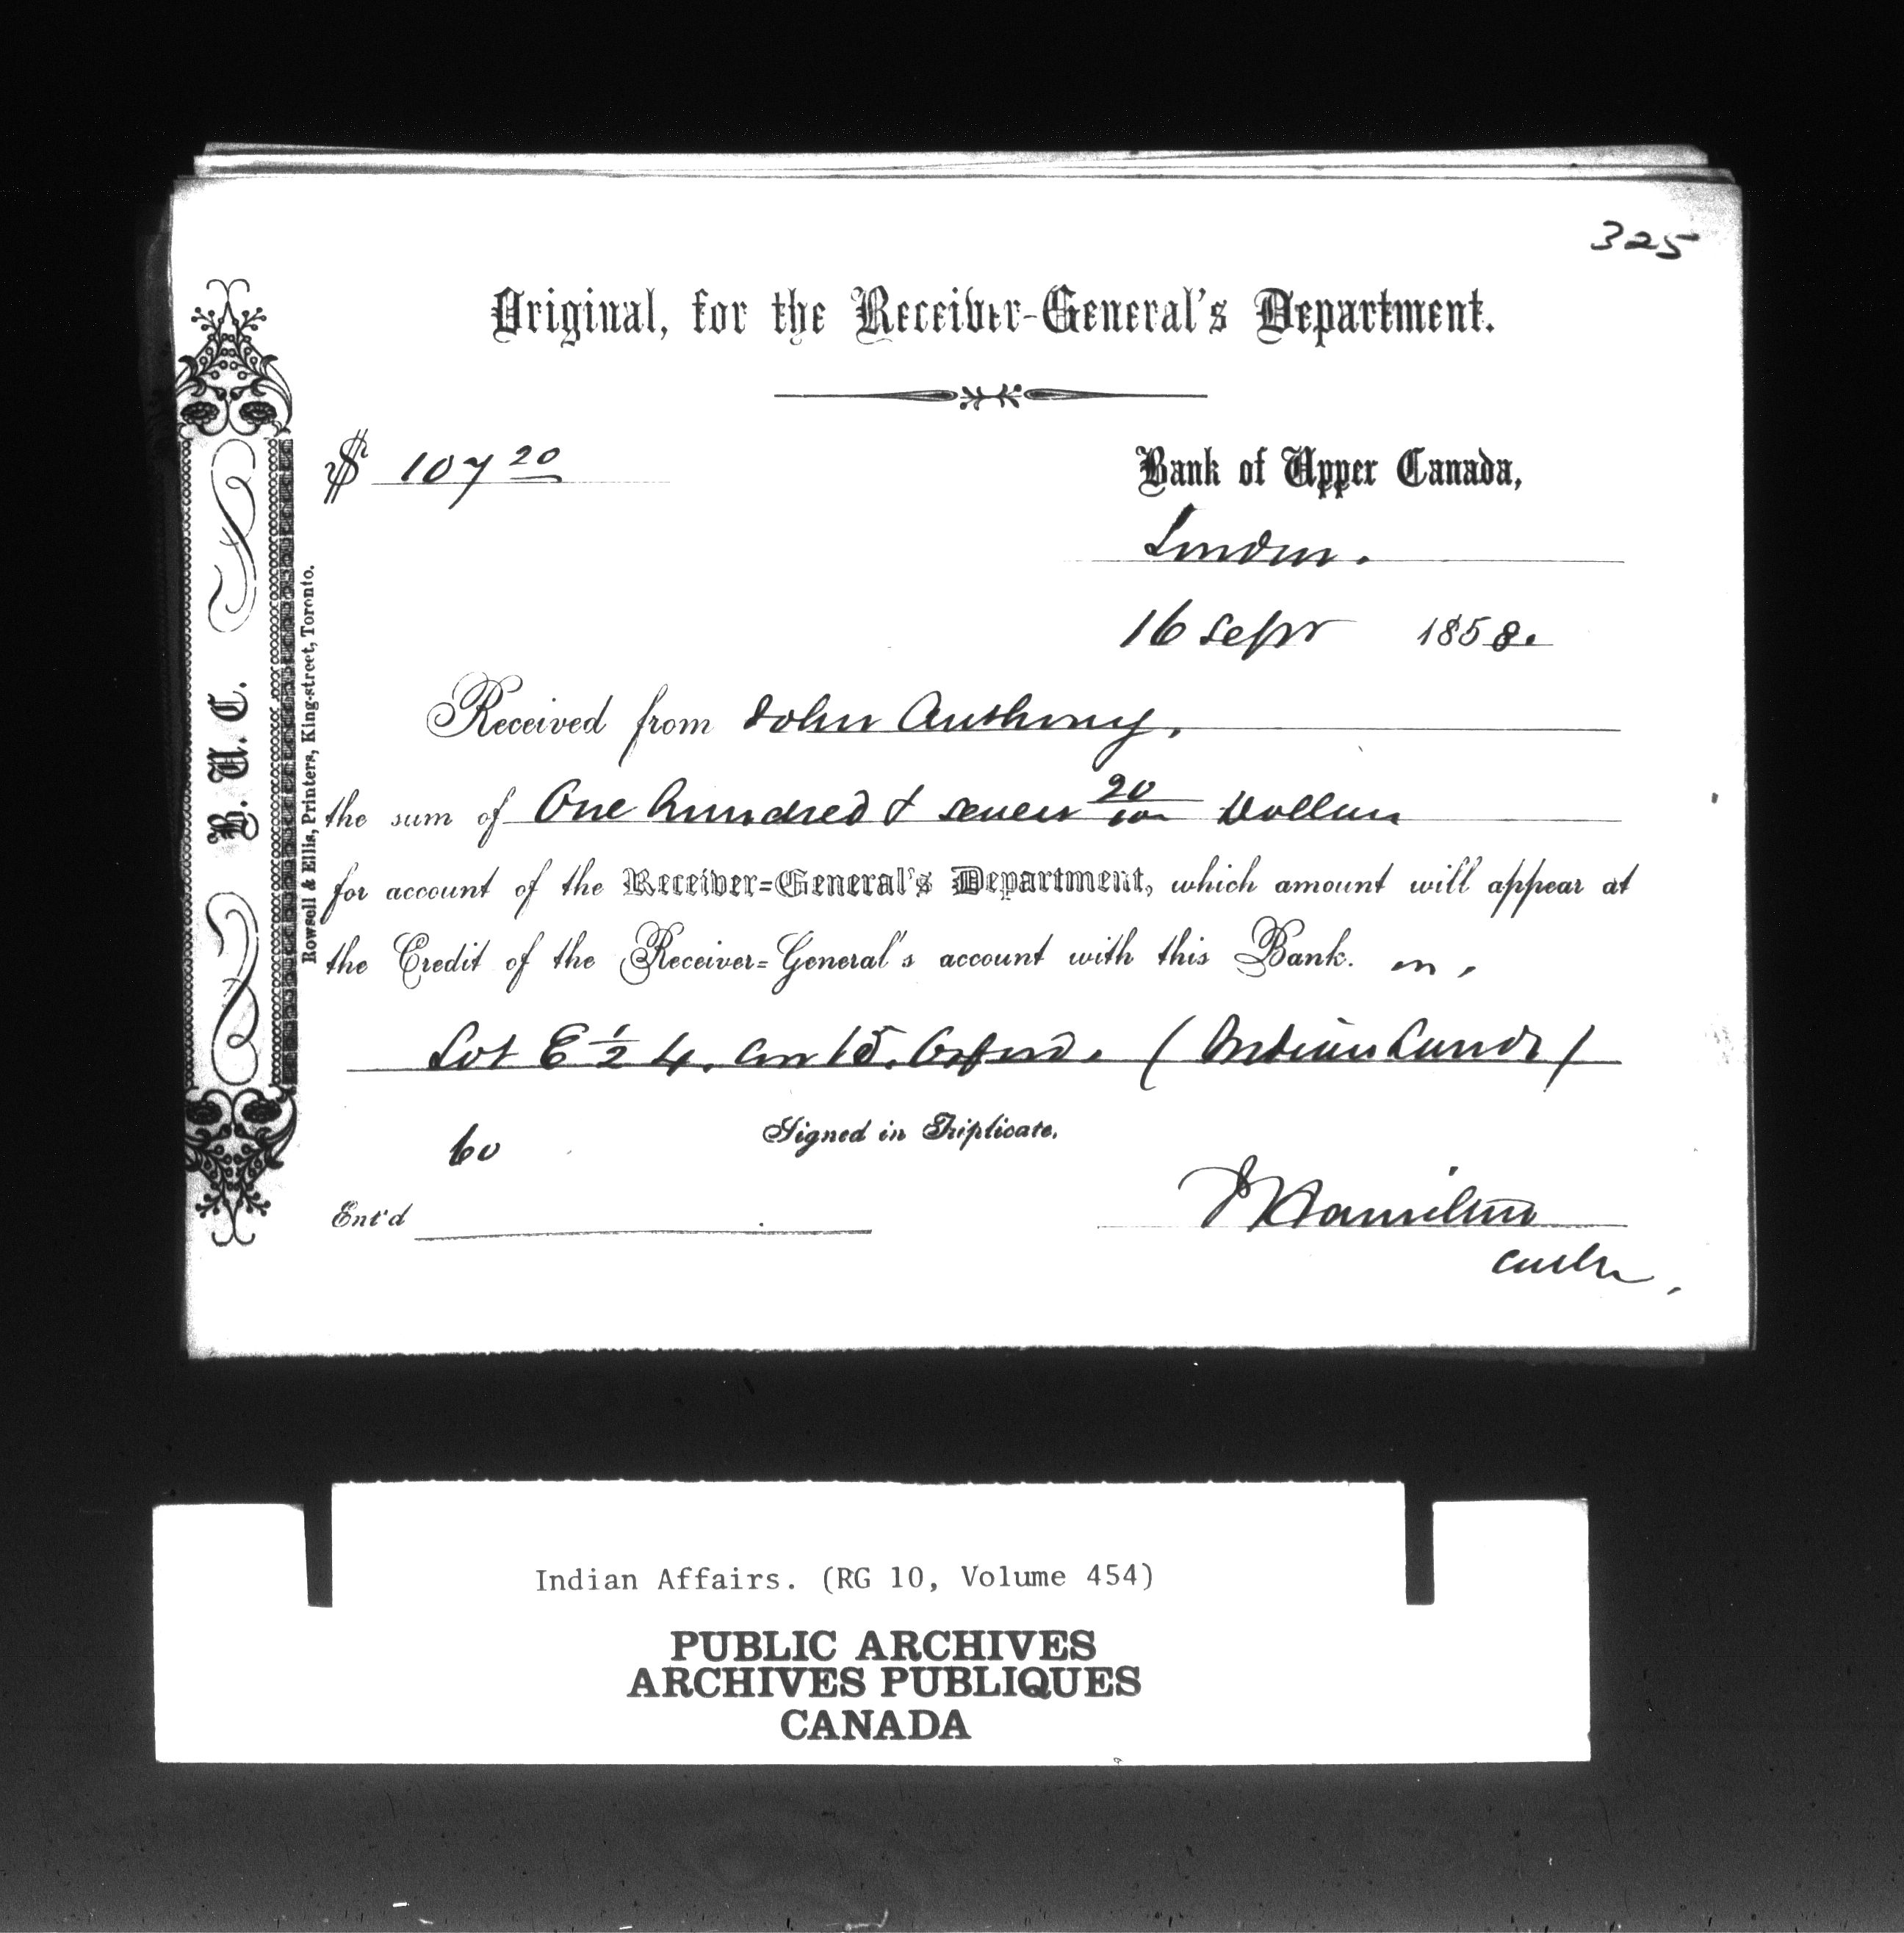 325
Original, for the Receiver-General's Department.
$ 107 20
Bank of Upper Canada,
London.
16 Sepr 1858.
Received from John Anthony,
the sum of One hundred & seven 20/100 Dollars
for account of the Receiver-General's Department, which amount will appear at
the Credit of the Receiver-General's account with this Bank. on,
Lot E ½ 4. Con 15. Oxford. (Indian Lands)
60
Signed in Triplicate.
Ent'd
Hamilton
Cashr.
B. U. C.
Rowsell & Ellis, Printers, King-street, Toronto.
Indian Affairs. (RG 10, Volume 454)
PUBLIC ARCHIVES
ARCHIVES PUBLIQUES
CANADA